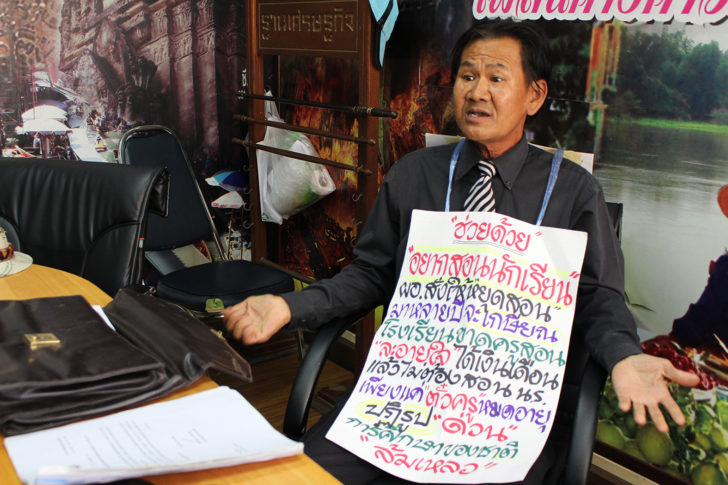 ฐานเศรษฐกิจ
"ช่วยด้วย"
"อยากสอนนักเรียน"
ผอ.สั่งให้หยุดสอน"
มาหลายปีจะเกษียณ
โรงเรียนขาดครูสอน
"ละอายใจ" ได้เงินเดือน
แล้วไม่ต้องสอน นร.
เพียงแค่ "ตั๋วครู" หมดอายุ
ปฏิรูป "ด่วน"
การศึกษาของชาติ
"ล้มเหลว"